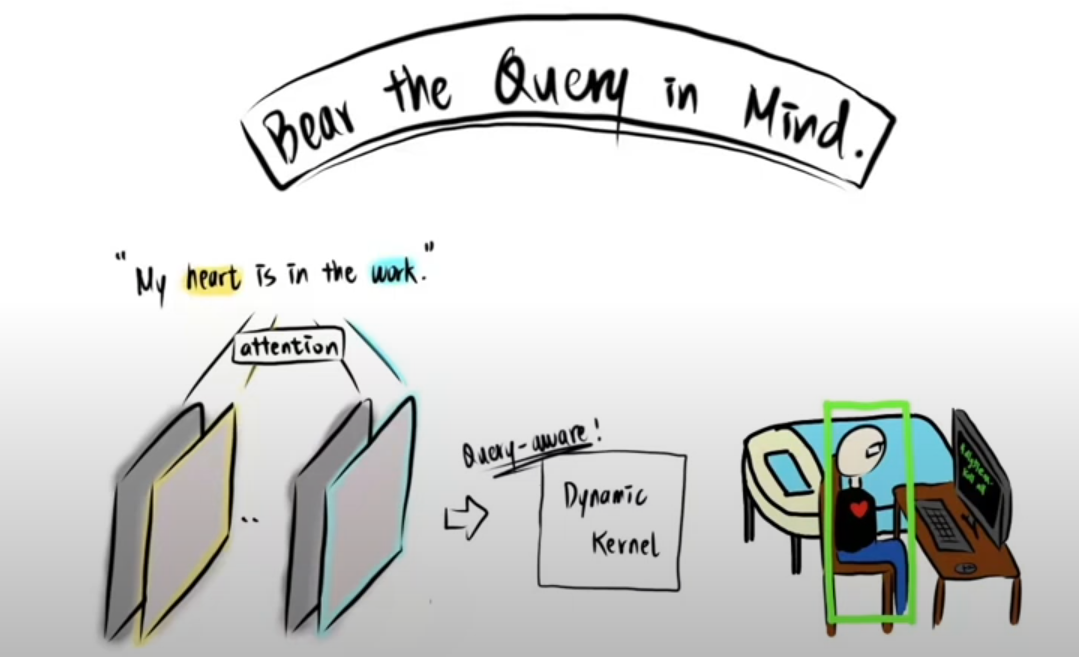 Bear the Query in Mind.
"My heart is in the work."
attention
..
Query-aware!
Dynamic
Kernel